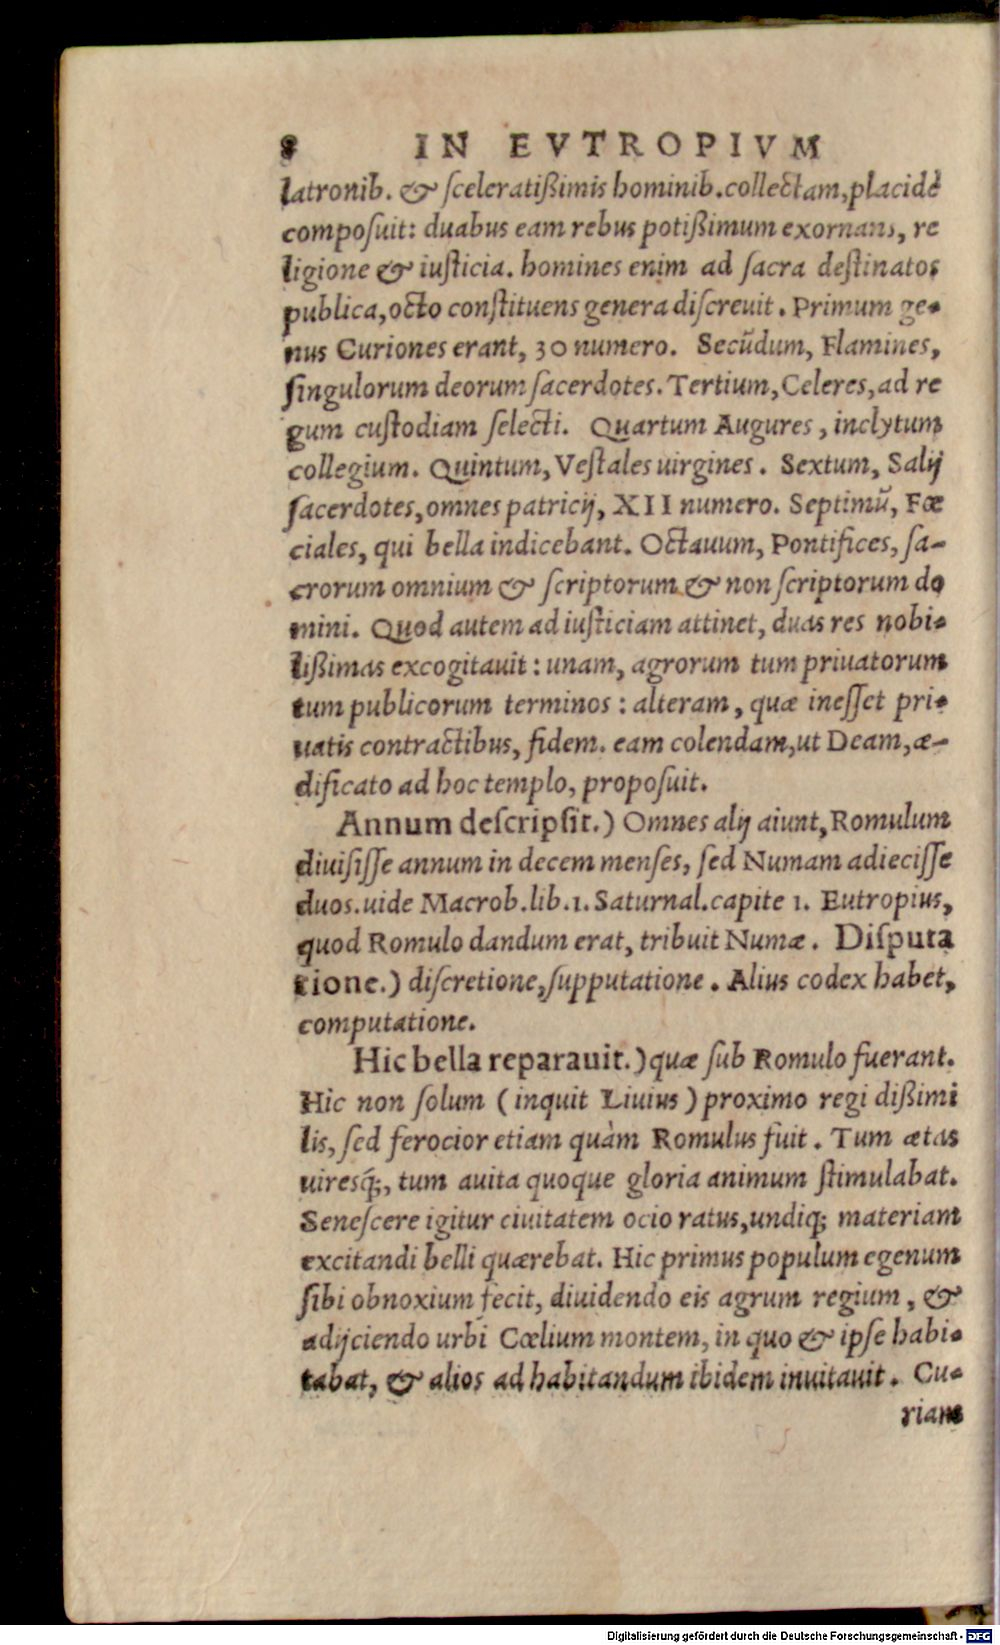 8 IN EVTROPIVM
latronib. & ſceleratißimis hominib. collectam, placidè
compoſuit: duabus eam rebus potißimum exornans, re
ligione & iuſticia. homines enim ad ſacra deſtinatos
publica, octo conſtituens genera diſcreuit. Primum ge-
nus Curiones erant, 30 numero. Secũdum, Flamines,
ſingulorum deorum ſacerdotes. Tertium, Celeres, ad re
gum cuſtodiam ſelecti. Quartum Augures, inclytum
collegium. Quintum, Veſtales uirgines. Sextum, Salij
ſacerdotes, omnes patricij, XII numero. Septimũ, Fœ
ciales, qui bella indicebant. Octauum, Pontifices, ſa-
crorum omnium & ſcriptorum & non ſcriptorum do
mini. Quod autem ad iuſticiam attinet, duas res nobi-
lißimas excogitauit: unam, agrorum tum priuatorum
tum publicorum terminos: alteram, quæ ineſſet pri-
uatis contractibus, fidem. eam colendam, ut Deam, æ-
dificato ad hoc templo, propoſuit.
Annum deſcripſit.) Omnes alij aiunt, Romulum
diuiſiſſe annum in decem menſes, ſed Numam adieciſſe
duos. uide Macrob. lib. 1. Saturnal. capite 1. Eutropius,
quod Romulo dandum erat, tribuit Numæ. Diſputa
tione.) diſcretione, ſupputatione. Alius codex habet,
computatione.
Hic bella reparauit.) quæ ſub Romulo fuerant.
Hic non ſolum (inquit Liuius) proximo regi dißimi
lis, ſed ferocior etiam quàm Romulus fuit. Tum ætas
uiresq́;, tum auita quoque gloria animum ſtimulabat.
Seneſcere igitur ciuitatem ocio ratus, undiq; materiam
excitandi belli quærebat. Hic primus populum egenum
ſibi obnoxium fecit, diuidendo eis agrum regium, &
adijciendo urbi Cœlium montem, in quo & ipſe habi-
tabat, & alios ad habitandum ibidem inuitauit. Cu-
riam
Digitalisierung gefördert durch die Deutsche Forschungsgemeinschaft - DFG